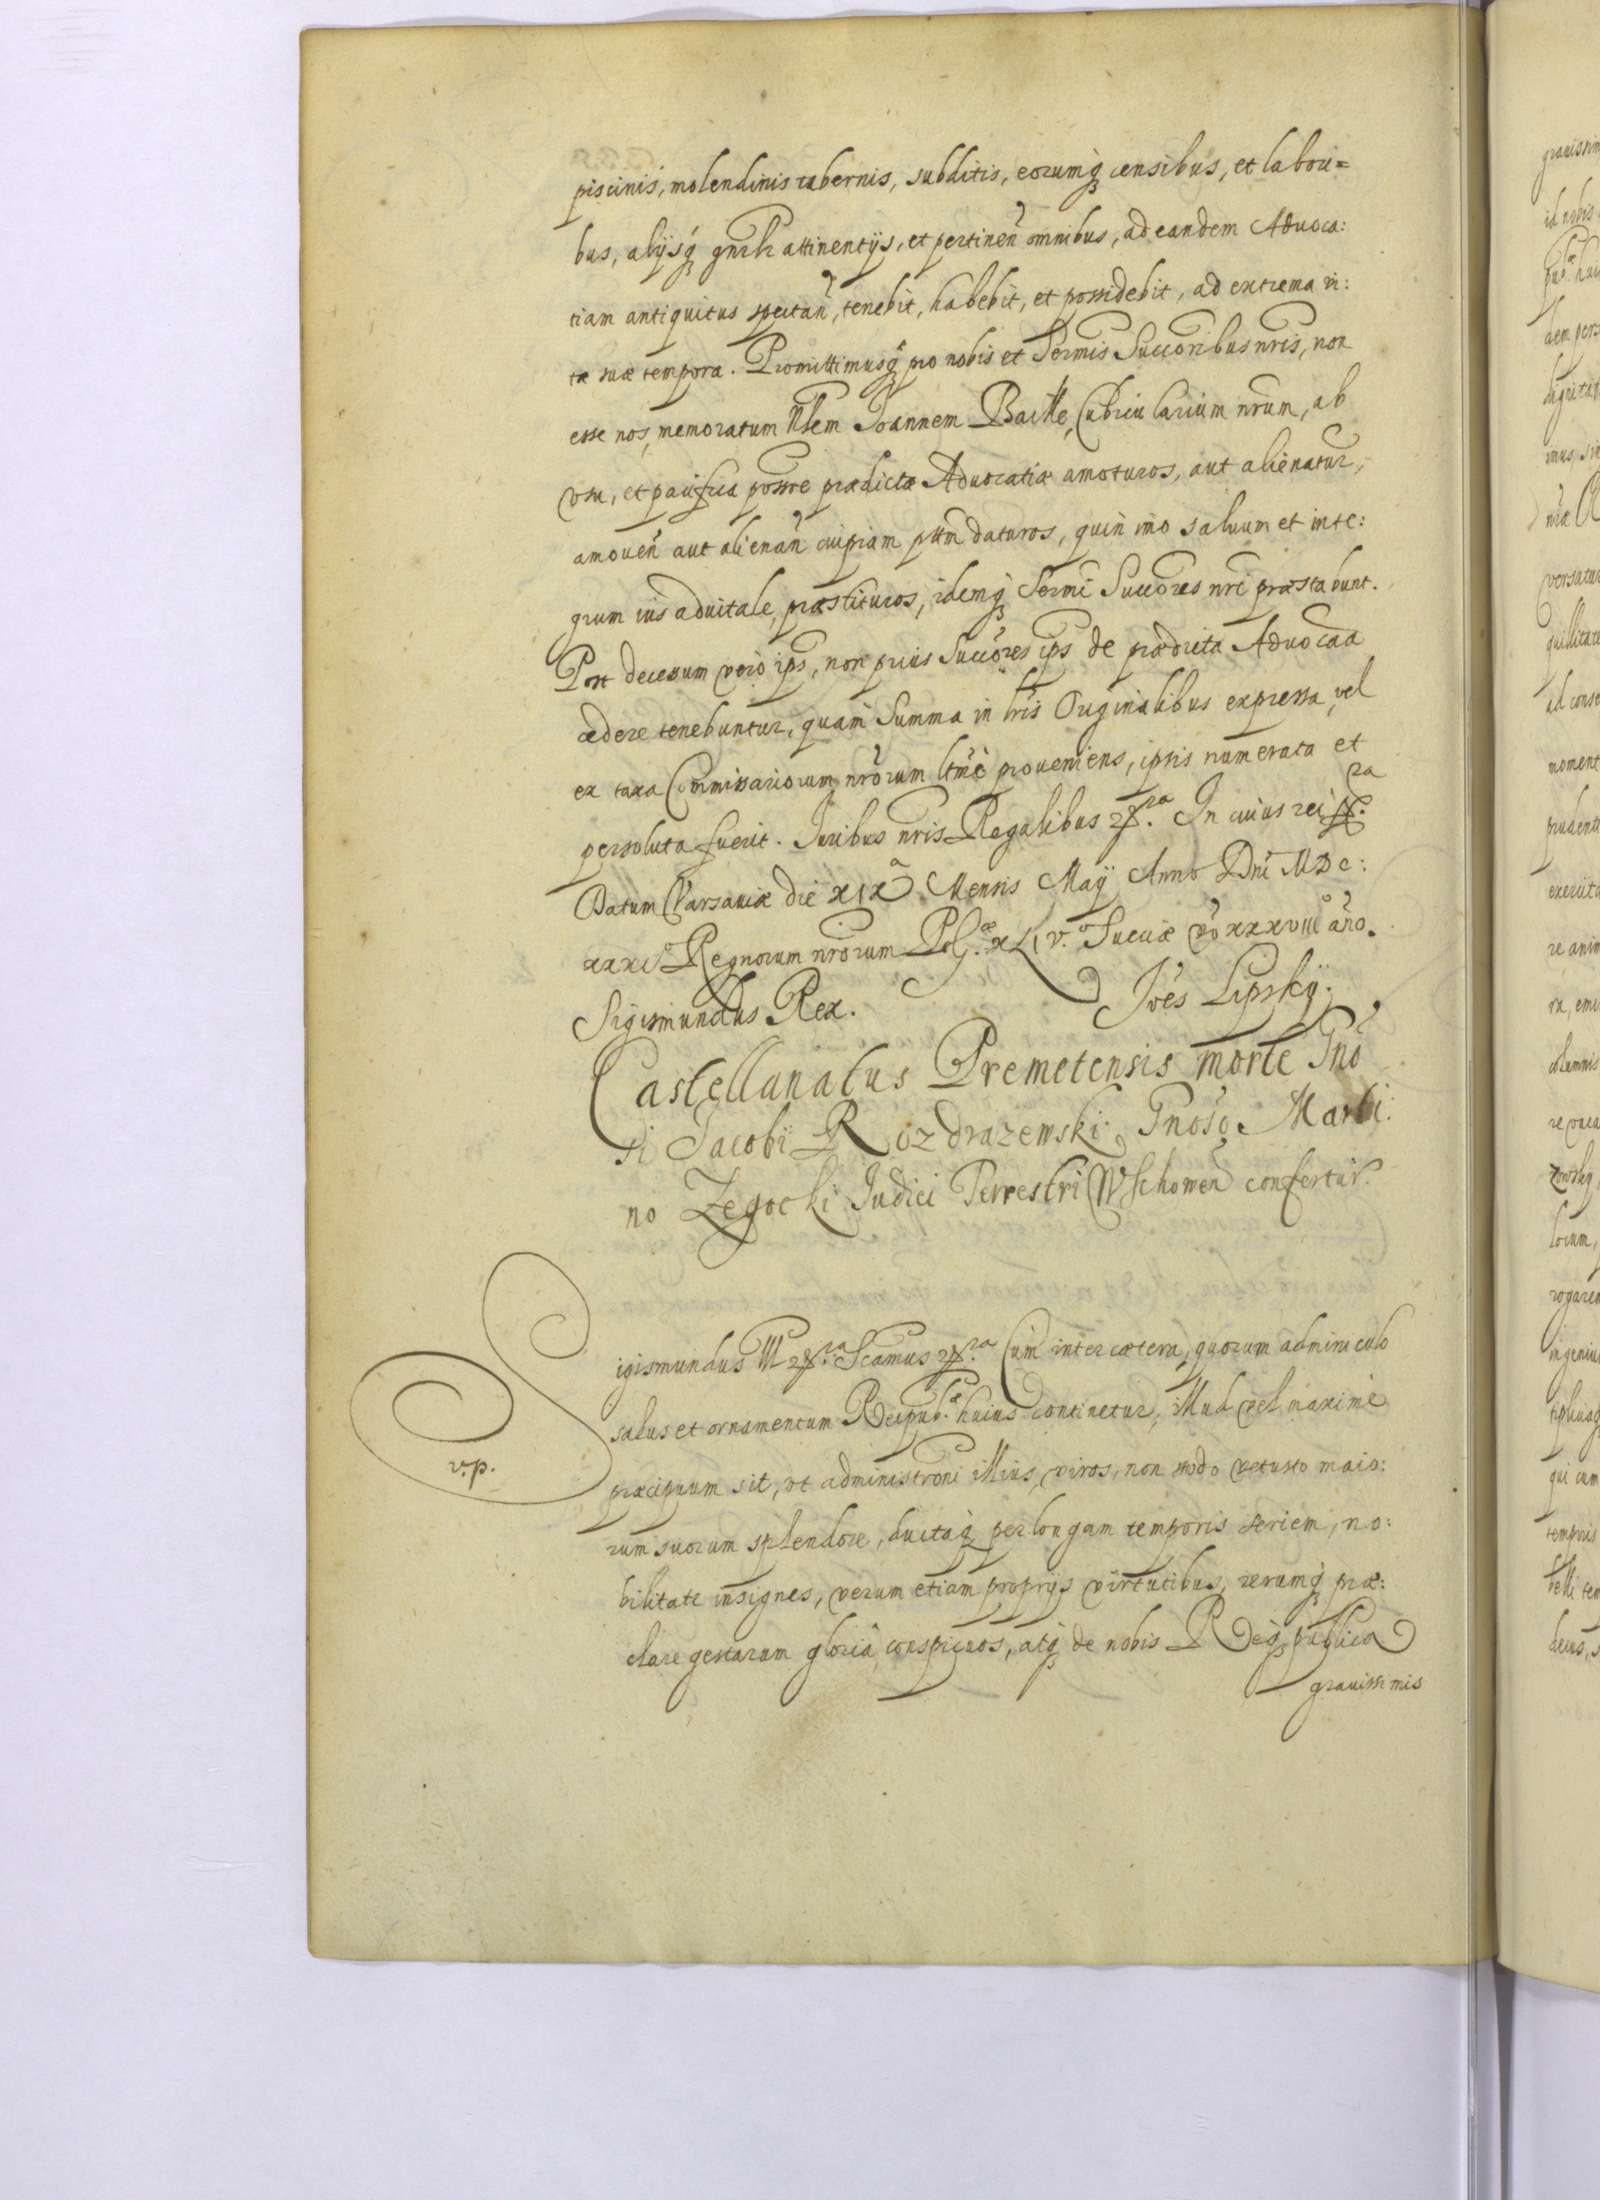 piscinis, molendinis tabernis, subditis, eorumq́ censibus, et labori=
bus, alijsq́ gnrlr attinentijs, et pertineñ omnibus, ad eandem Aduoca:
tiam antiquitus spectañ, tenebit, habebit, et possidebit, ad extrema vi:
tæ suæ tempora. Promittimusq́ pro nobis et Sermis Succoribus nris, non
esse nos, memoratum Nblem Joannem Baille, Cubicularium nrum, ab
vsu, et pacifica possne prædictæ Aduocatiæ amoturos, aut alienatur,
amoueñ aut alienañ cuipiam pttm daturos, quin imo saluum et inte:
grum ius aduitale, præstituros, idemq́ Sermi Succores nri præstabunt.
Post decessum vero ips, non prius Succores ips de prædicta Aduocaa
cedere tenebuntur, quam Summa in lris Originalibus expressa, vel
ex taxa Commissariorum nrorum ltme proueniens, ipsis numerata et
persoluta fuerit. Juribus nris Regalibus &ra. In cuius rei &ra.
Datum Varsauiæ die XIXa Mensis Maij Anno Dni MDC:
XXXIo Regnorum nrorum Pol. XLIV. Sueciæ vo XXXVIIIo año.
Sigismundus Rex. Joes Lipsky.
Castellanatus Premetensis morte Gno
si Jacobi Rozdrazewski, Gnoso Marti:
no Zegocki Judici Terrestri Wschoweñ confertur.
Sigismundus III &ra. Scamus &ra. Cum inter cætera, quorum adminiculo
salus et ornamentum Reipub. huius continetur, illud vel maxime
v.p.
præcipuum sit, vt administroni illius, viros, non modo vetusto maio:
rum suorum splendore, ductaq́ per longam temporis seriem, no:
bilitate insignes, verum etiam proprijs virtutibus, rerumq́ præ:
clare gestarum gloria, conspicuos, atq́ de nobis Reiq́ publica
grauissimis